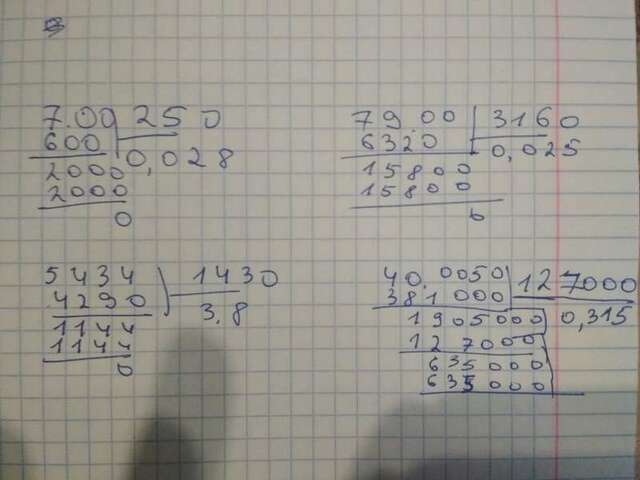 7.00 250
600 0,028
2000
2000
0
79.00 3160
6320 0,025
15800
15800
0
5434 1430
4290 3,8
1144
1144
0
40.0050 127000
381000 0,315
1905000
127000
635000
635000